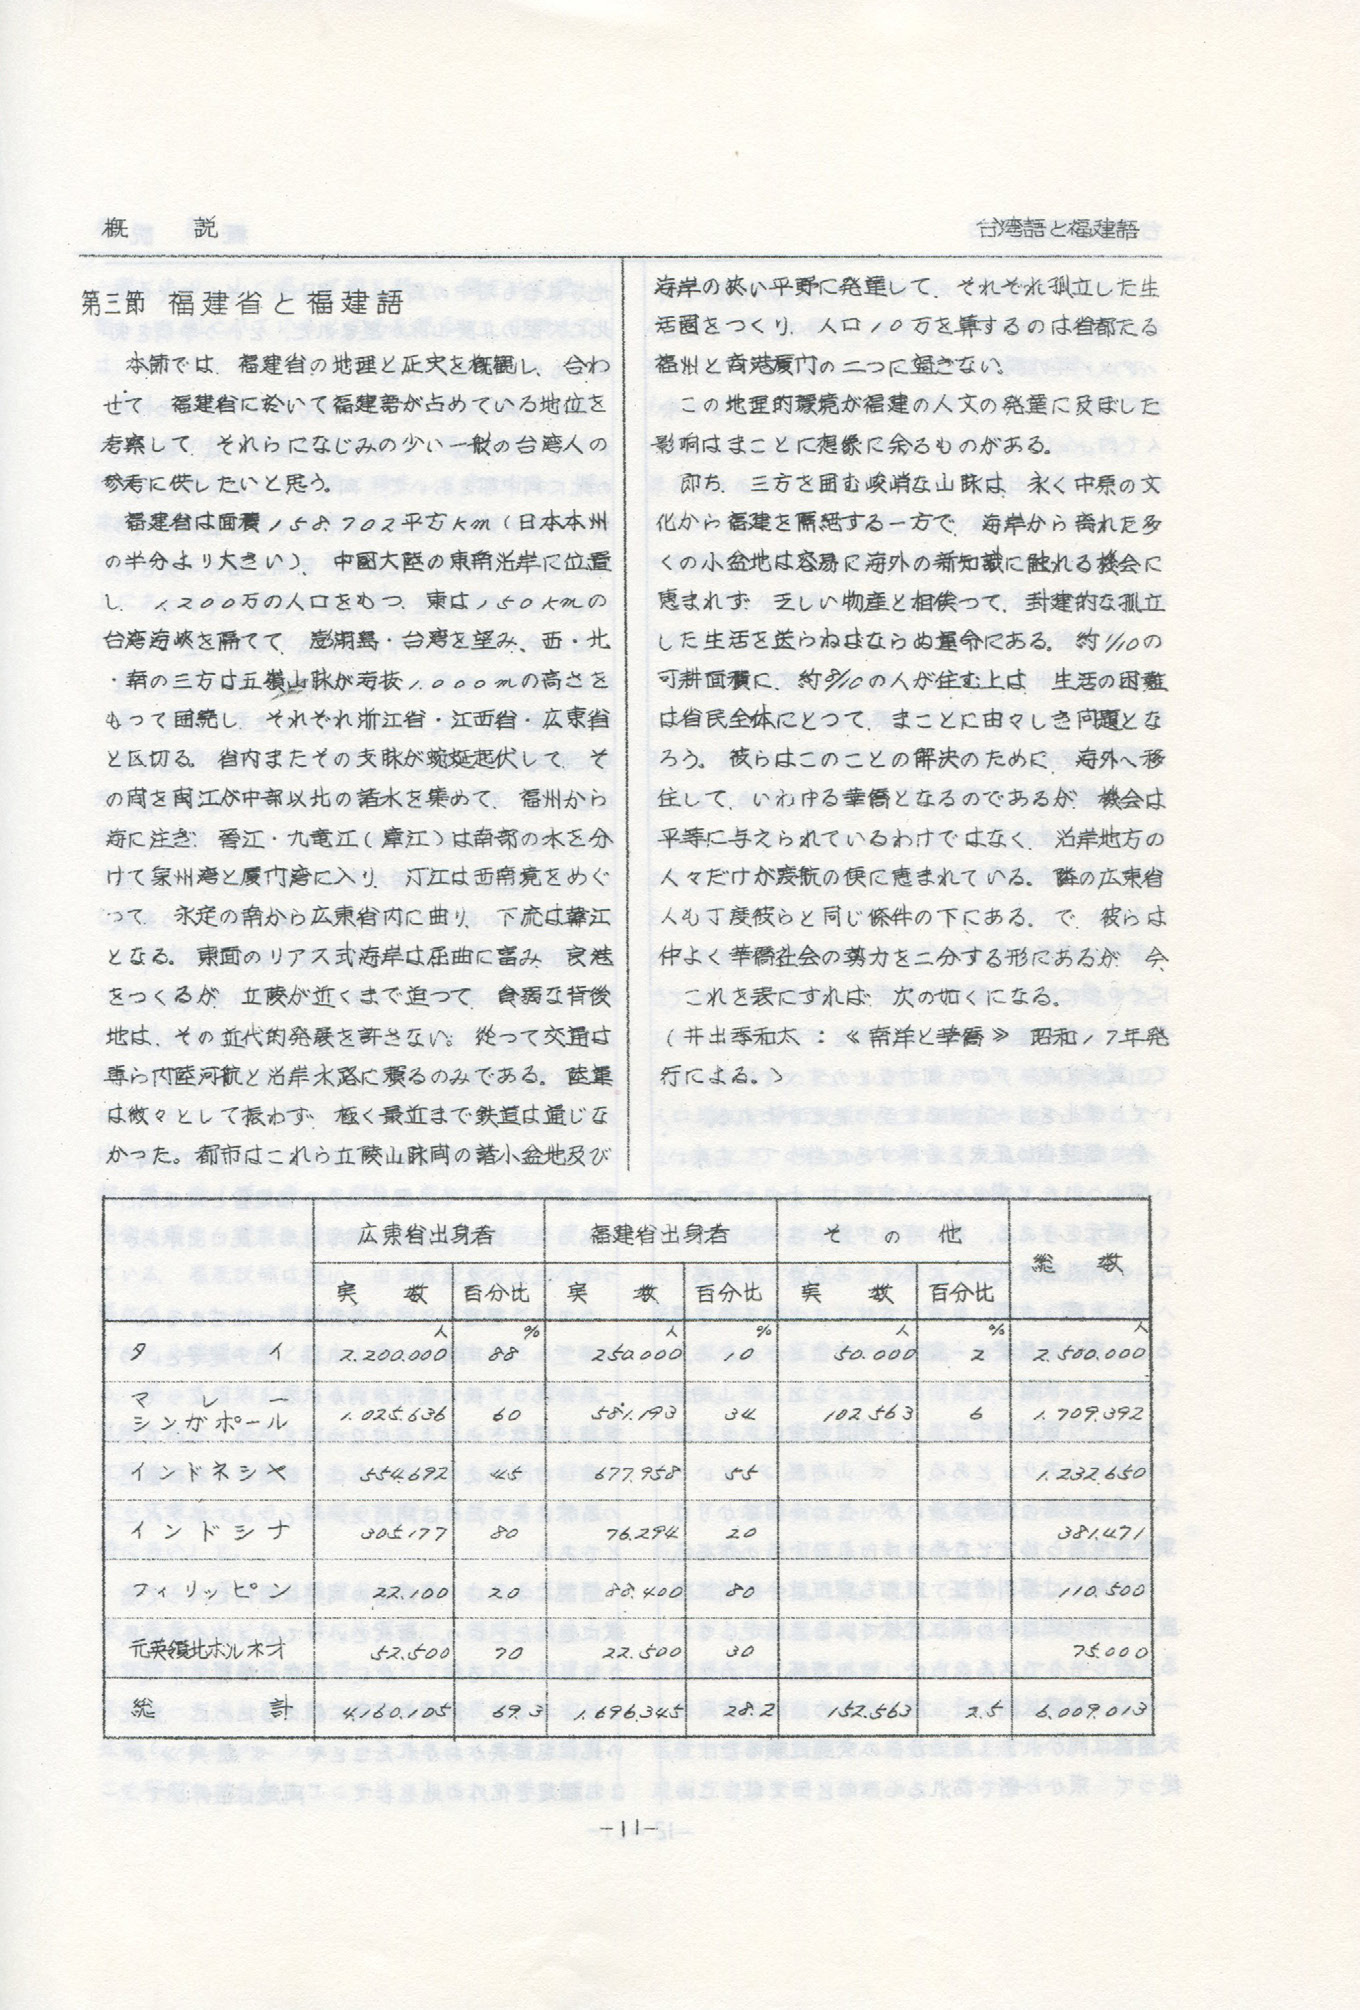 概　説
台湾語と福建語
第三節 福建省と福建語
本節では、福建省の地理と歴史を概観し、合わ
せて、福建省に於いて福建語が占めている地位を
考察して、それらになじみの少い一般の台湾人の
参考に供したいと思う。
福建省は面積158702平方km（日本本州
の半分より大きい）、中國大陸の東南沿岸に位置
し、1200万の人口をもつ、東は150kmの
台湾海峡を隔てて、澎湖島・台湾を望み、西・北
・南の三方は五嶺山脉が海抜1.000mの高さを
もって囲繞し、それぞれ浙江省・江西省・広東省
と区切る。省内またその支脉が蜿蜒起伏して、そ
の間を閩江が中部以北の諸水を集めて、福州から
海に注ぎ、晉江・九竜江（漳江）は南部の水を分
けて泉州湾と厦門湾に入り、汀江は西南境をめぐ
って、永定の南から広東省内に曲り、下流は韓江
となる。東面のリアス式海岸は屈曲に富み、良港
をつくるが、丘陵が近くまで迫つて、貧弱な背後
地は、その近代的発展を許さない。從って交通は
専ら内陸河航と沿岸水路に頼るのみである。陸運
は微々として振わず、極く最近まで鉄道は通じな
かった。都市はこれら丘陵山脉間の諸小盆地及び
海岸の狭い平野に発達して、それぞれ孤立した生
活圏をつくり、人口10万を算するのは省都たる
福州と商港厦門の二つに過ぎない。
この地理的環境が福建の人文の発達に及ぼした
影响はまことに想象に余るものがある。
即ち、三方を囲む峻峭な山脉は、永く中原の文
化から福建を隔絶する一方で、海岸から离れた多
くの小盆地は容易に海外の新知識に触れる機会に
恵まれず、乏しい物産と相俟つて、封建的な孤立
した生活を送らねばならぬ運命にある。約1/10の
可耕面積に、約8/10の人が住む上は、生活の困難
は省民全体にとつて、まことに由々しき问題とな
ろう。彼らはこのことの解决のために、海外へ移
住して、いわゆる華僑となるのであるが、機会は
平等に与えられているわけではなく、沿岸地方の
人々だけが渡航の便に恵まれている。隣の広東省
人も丁度彼らと同じ條件の下にある。で、彼らは
仲よく華僑社会の勢力を二分する形にあるが、今、
これを表にすれば、次の如くになる。
（井出季和太：≪南洋と華僑≫　昭和17年発
行による。）
広東省出身者　福建省出身者　その他　総数
実数　百分比　実数　百分比　実数　百分比
人　%　人　%　人　%　人
タイ　2.200.000　88　250.000　10　50.000　2　2.500.000
マレー
シンガポール　1.025.636　60　581.193　34　102.563　6　1.709.392
インドネシヤ　554.692　45　677.958　55　1.232.650
インドシナ　305.177　80　76.294　20　381.471
フィリッピン　22.100　20　88.400　80　110.500
元英領北ボルネオ　52.500　70　22.500　30　75.000
総計　4.160.105　69.3　1.696.345　28.2　152.563　2.5　6.009.013
—11—